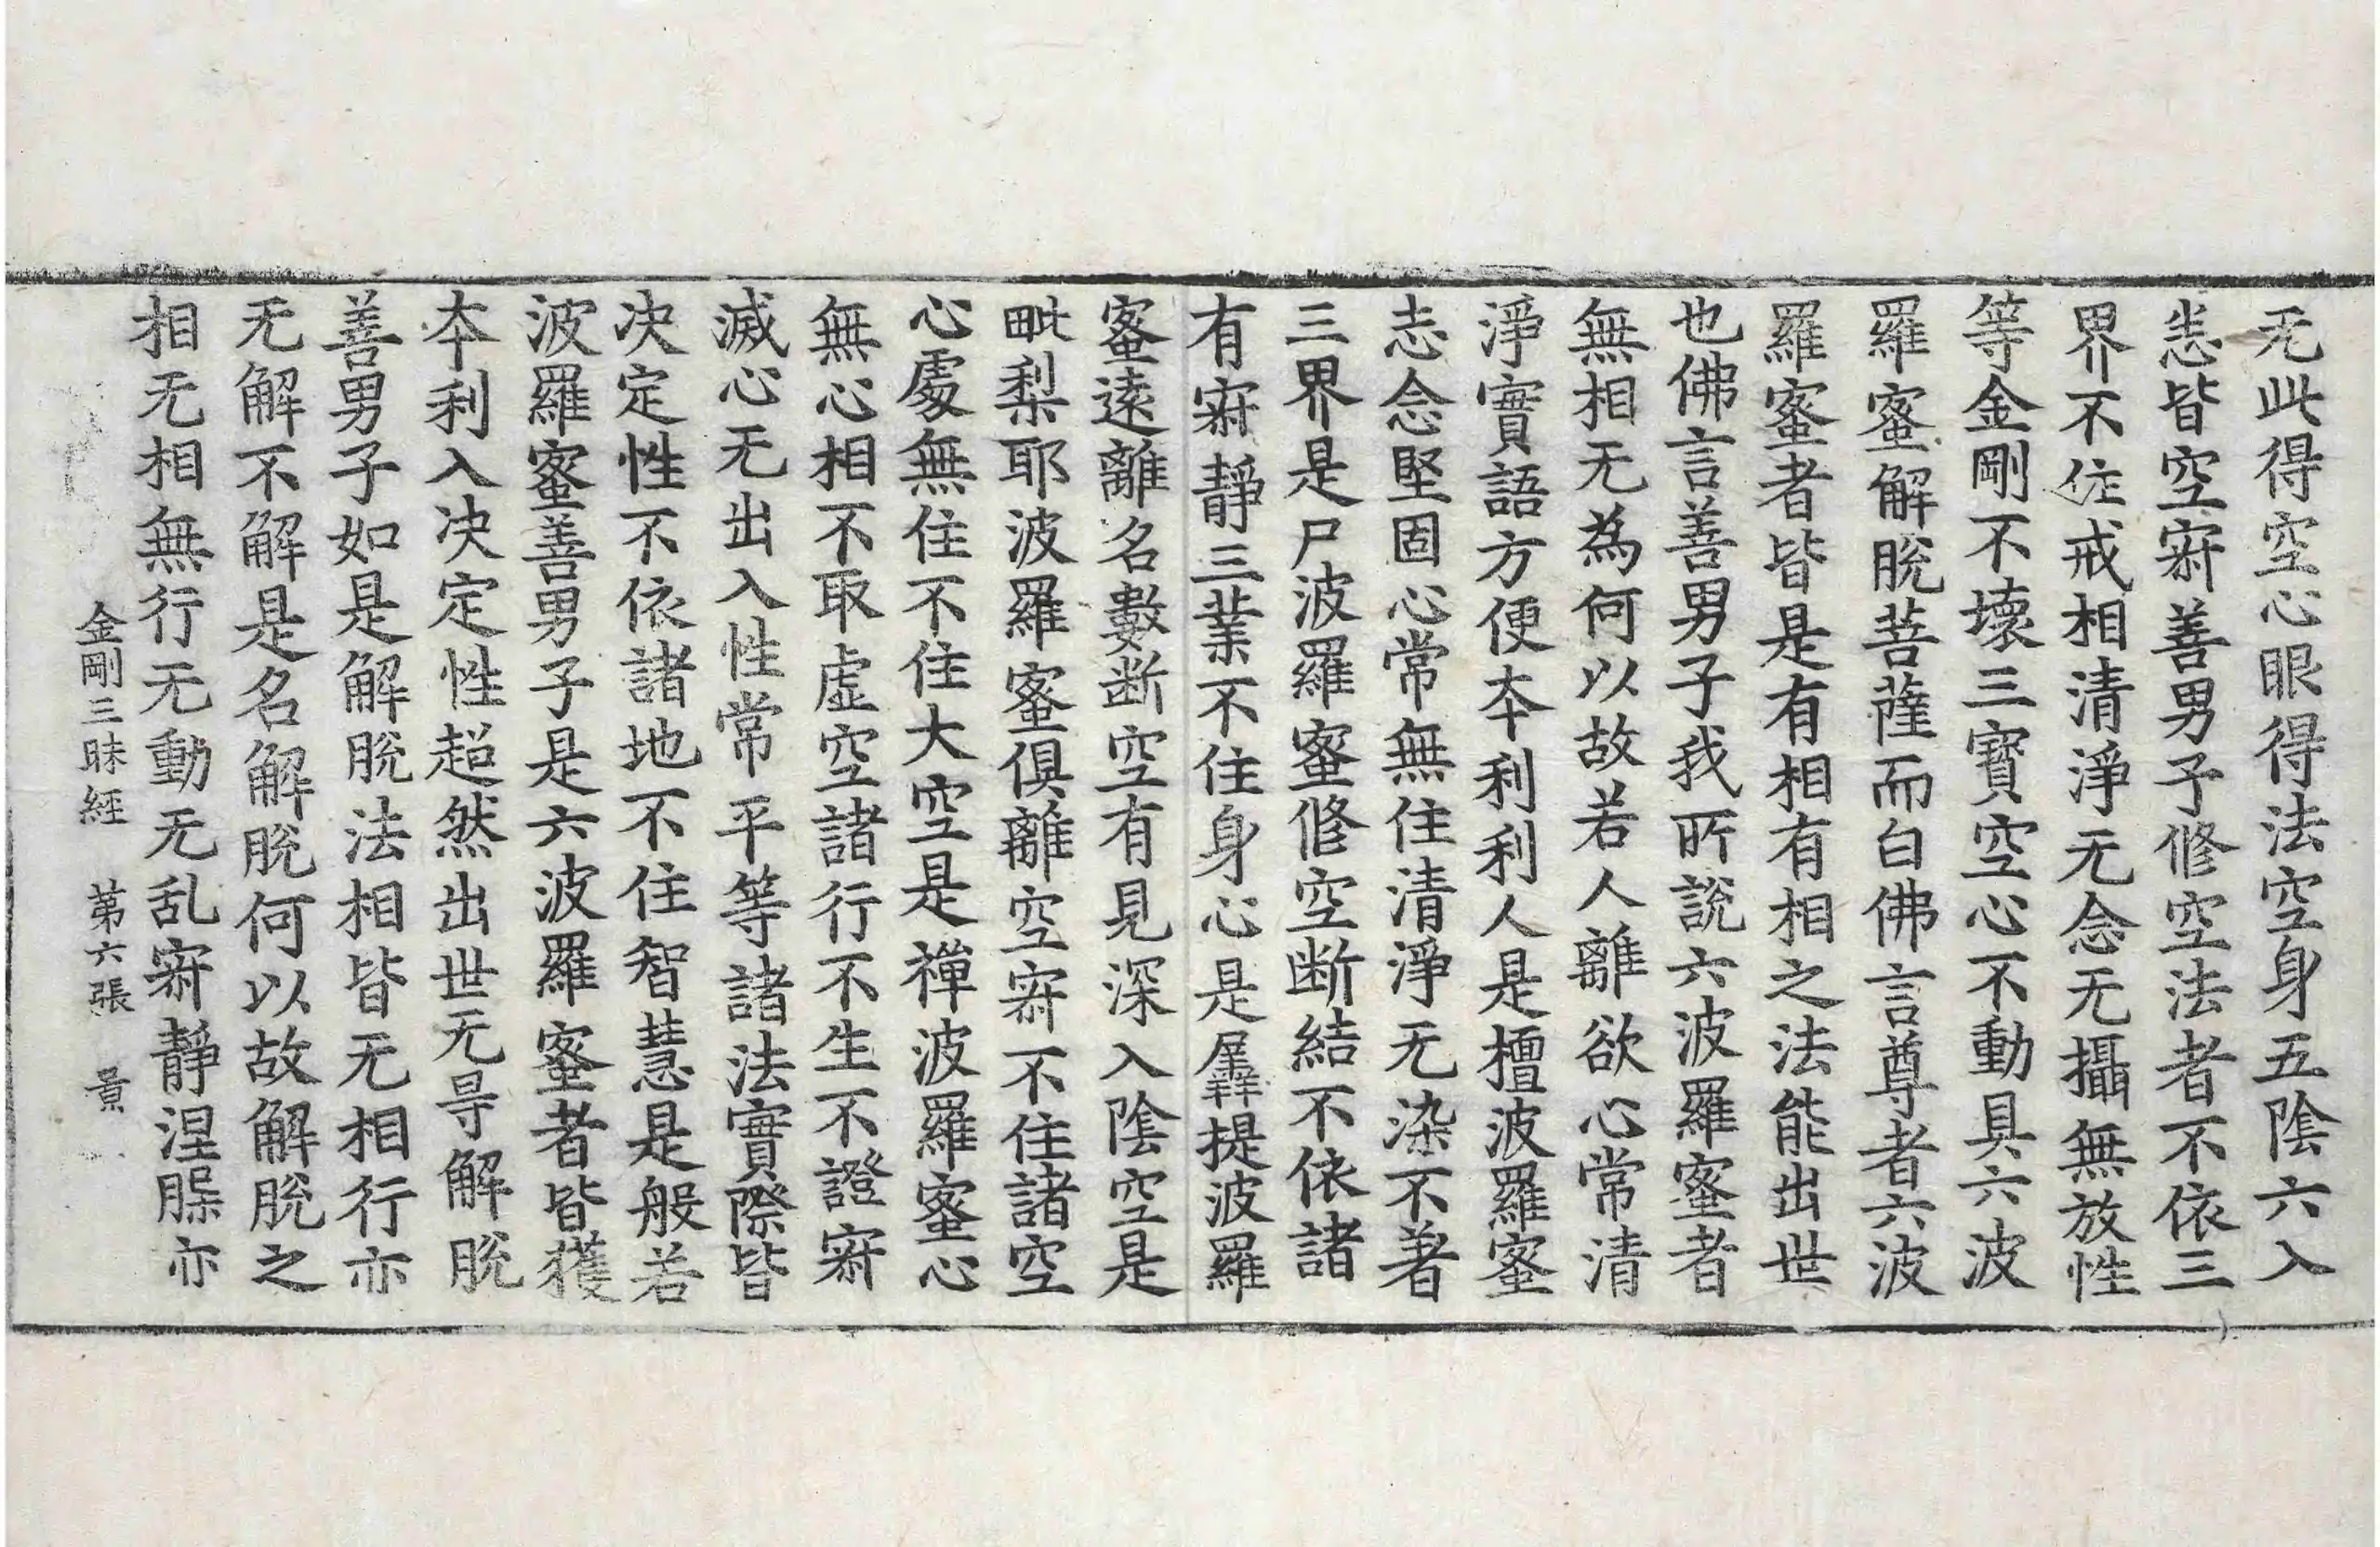 无此得空心眼得法空身五陰六入
悉皆空寂善男子修空法者不依三
界不住戒相清淨无念无攝無放性
等金剛不壞三寶空心不動具六波
羅蜜解脫菩薩而白佛言尊者六波
羅蜜者皆是有相有相之法能出世
也佛言善男子我所說六波羅蜜者
無相无為何以故若人離欲心常清
淨實語方便本利利人是檀波羅蜜
志念堅固心常無住清淨无染不著
三界是尸波羅蜜修空断結不依諸
有寂靜三業不住身心是羼提波羅
蜜遠離名數断空有見深入陰空是
毗梨耶波羅蜜俱離空寂不住諸空
心處無住不住大空是禪波羅蜜心
無心相不取虛空諸行不生不證寂
滅心无出入性常平等諸法實際皆
决定性不依諸地不住智慧是般若
波羅蜜善男子是六波羅蜜者皆獲
本利入决定性超然出世无㝵解脫
善男子如是解脫法相皆无相行亦
无解不解是名解脫何以故解脫之
相无相無行无動无乱寂靜涅槃亦
金剛三昧經 苐六張 景